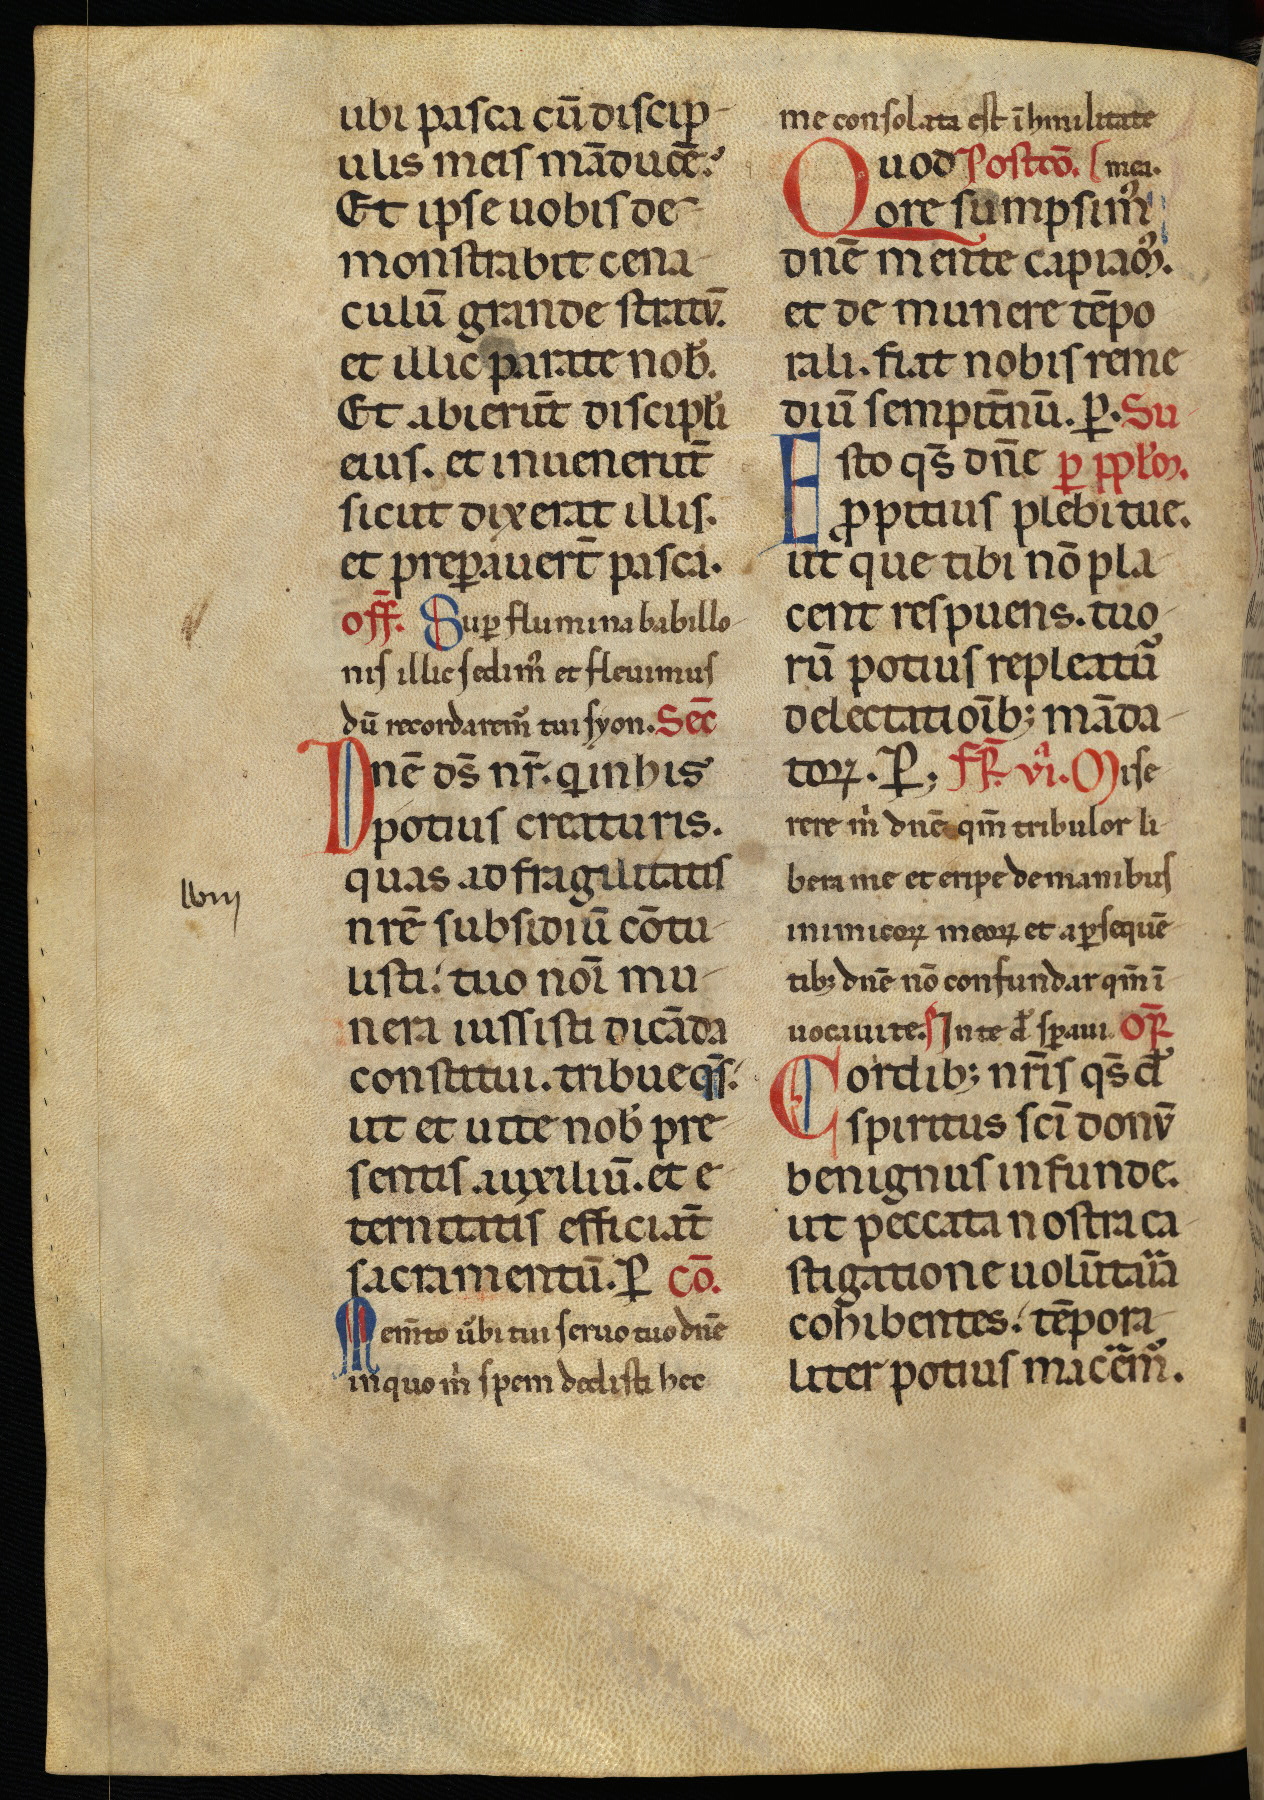 ubi pasca cū discip-
ulis meis māducē?
Et ipse uobis de-
monstrabit cena-
culū grande stratū.
et illic parate nob̄.
Et abierūt discipl̄i
eius. et inuenerūt
sicut dixerat illis.
et preꝑauert̄ pasca.
off̄. Suꝑ flumina babillo-
nis illic sedim᷒ et fleuimus
dū recordarem᷒ tui syon. Sec̄
Dn̄e ds̄ nr̄. qui in his
potius creaturis.
quas ad fragilitatis
nrē subsidiū cōtu-
listi: tuo noī mu-
nera iussisti dicāda
constitui. tribue qs̄:
ut et uite nob̄ pre-
sentis auxiliū. et e-
ternitatis efficiāt
sacramentū. P̄ Cō.
Mem̄to ūbi tui seruo tuo dn̄e
in quo m̄ spem dedisti hec
lviij
me consolata est ī humilitate
Quod Postcō. [mea.
ore sumpsim᷒
dn̄e mente capiam᷒.
et de munere tēpo
rali. fiat nobis reme
diū sempit̄nū. ꝑ. Su
Esto qs̄ dn̄e ꝑ ppl̄m.
ꝓpitius plebi tue.
ut que tibi nō pla-
cent respuens. tuo-
rū potius repleat᷒
delectatioīb; māda-
toꝝ. P̄; Fr̄. vi. Mise
rere m̄ dn̄e qm̄ tribulor li-
bera me et eripe de manibus
inimicoꝝ meoꝝ et a ꝑsequē-
tib; dn̄e nō confundar qm̄ ī-
uocaui te. In te d̄ sꝑaui. Or̄
Cordib; nr̄is qs̄ d̄
spiritus scī donū
benignus infunde.
ut peccata nostra ca-
stigatione uolūtaria
cohibentes: tēpora-
liter potius macerem᷒.